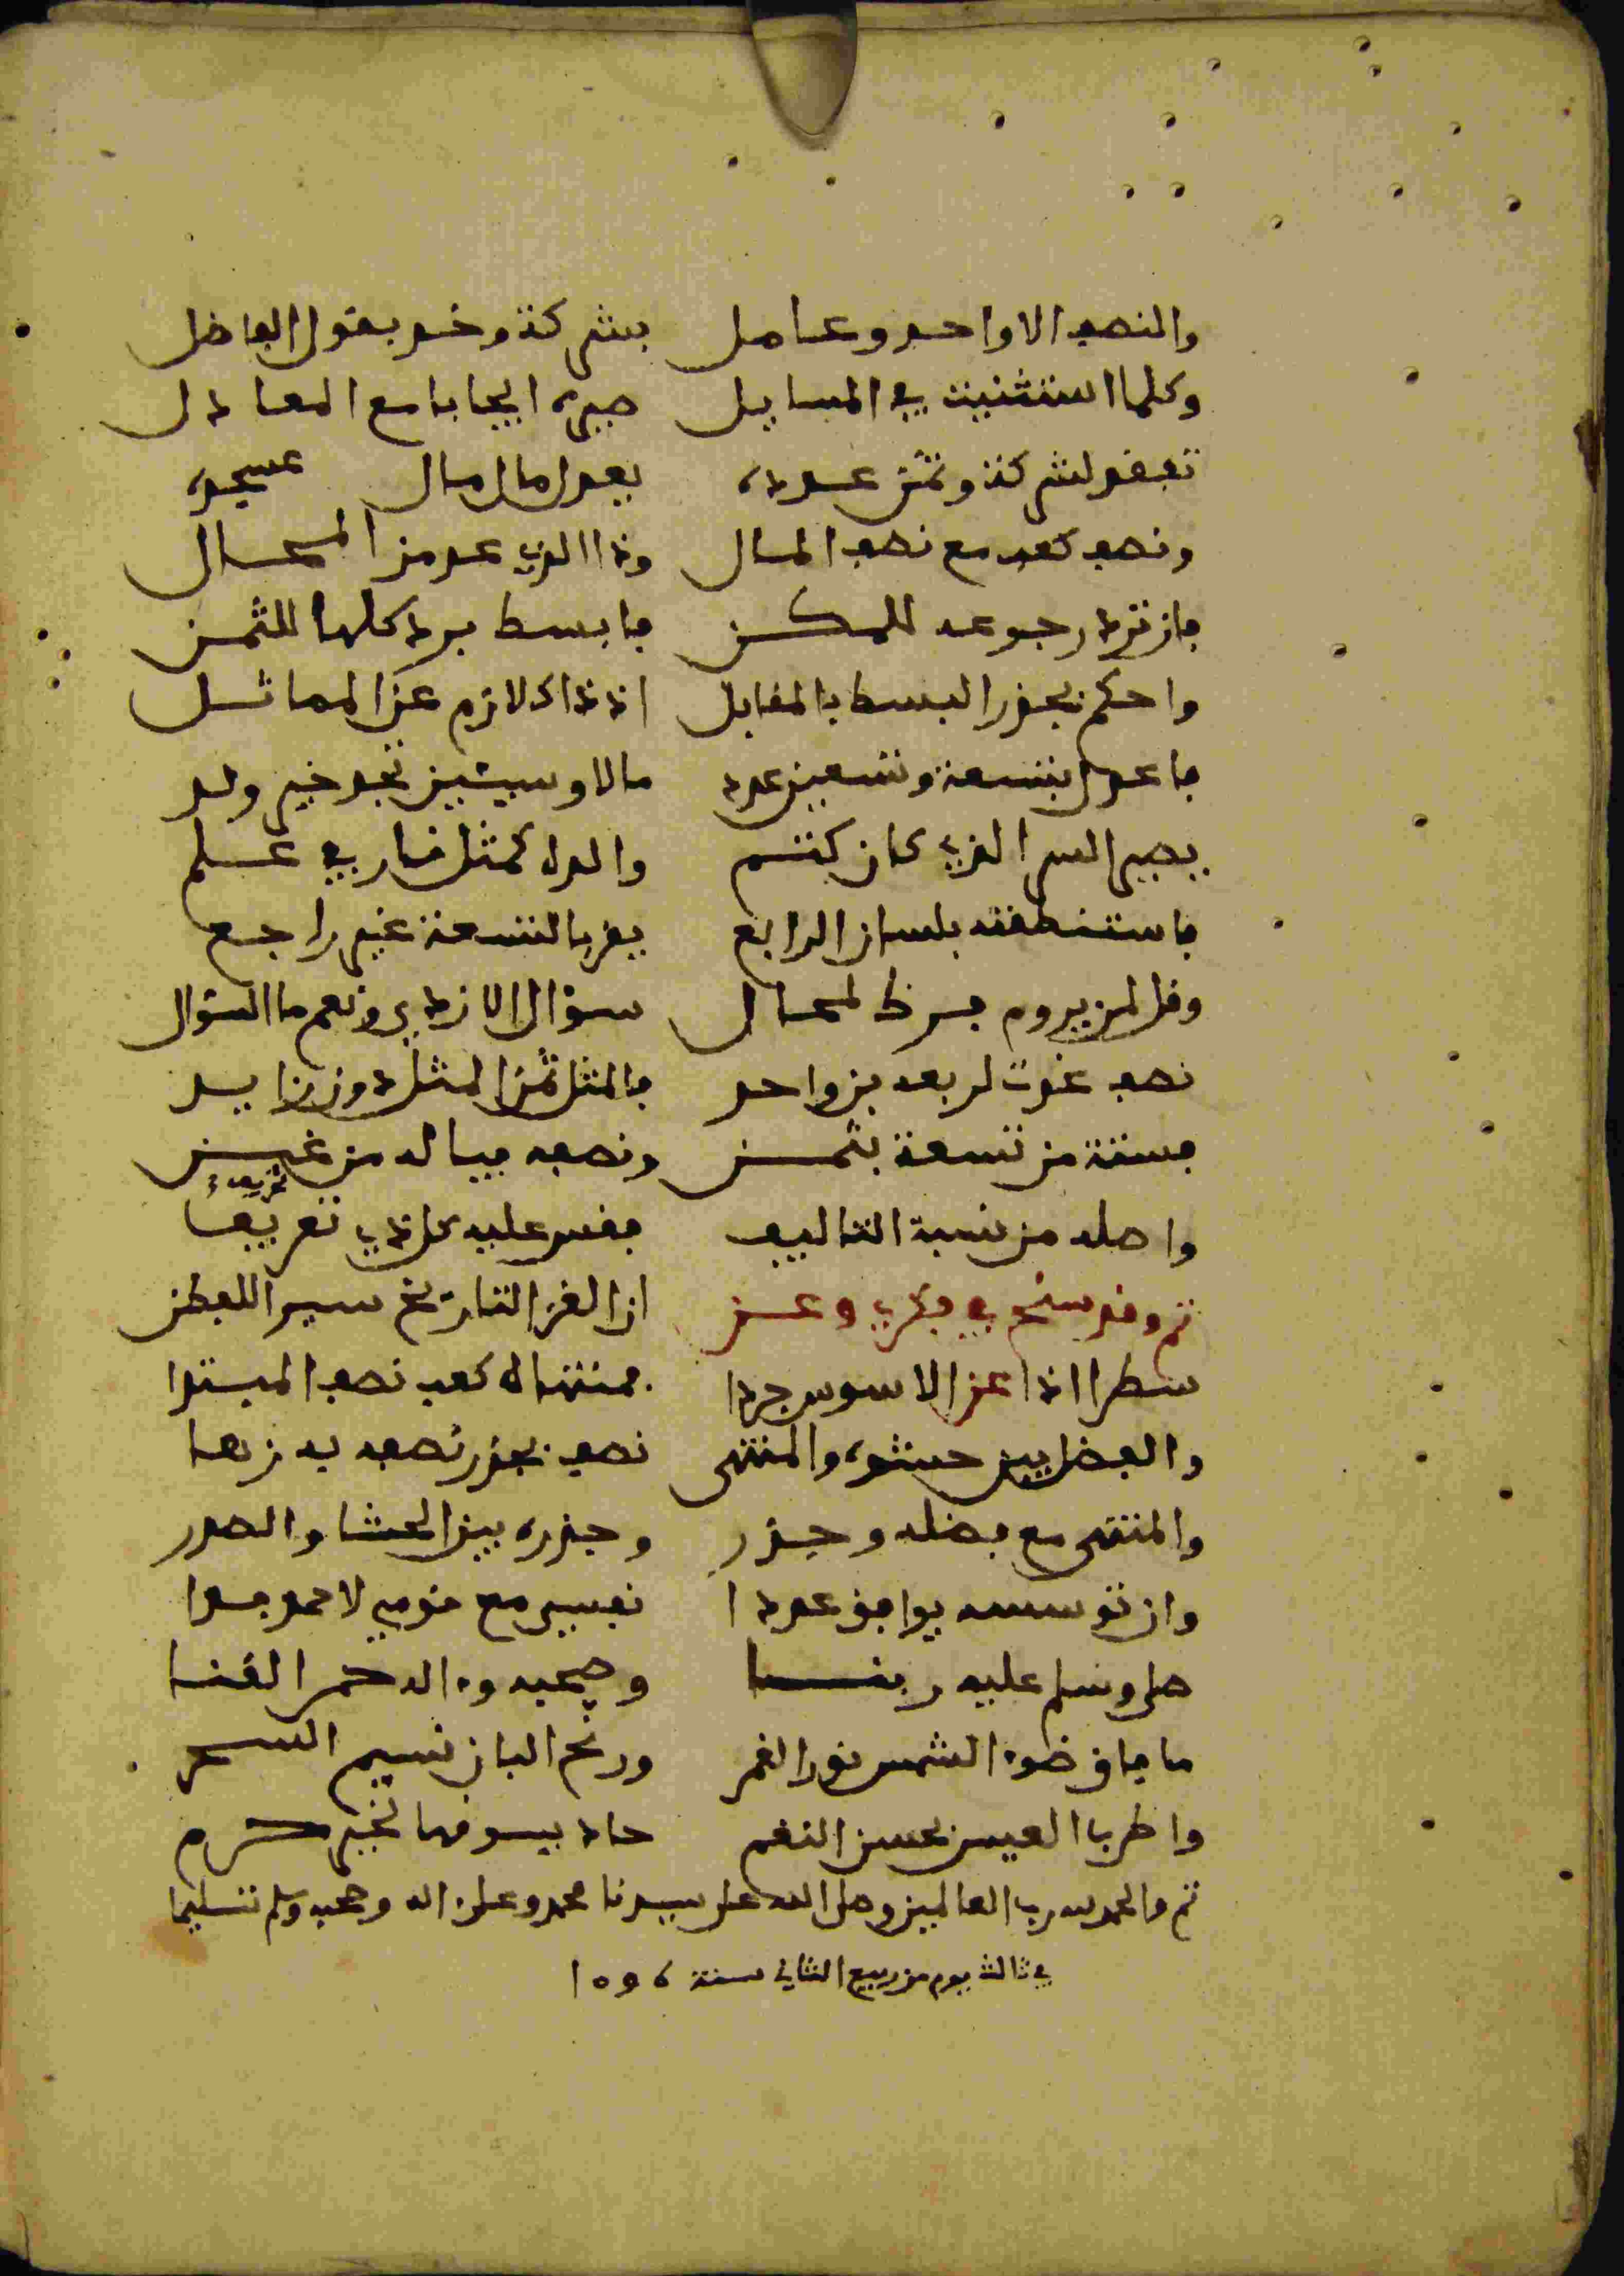 والنصف الا واحد وعامل بشركة وخذ بقول الفاضل
وكلما استثنيت في المسايل صيره ايجابا مع المعادل
ثمن عدده يعدل مال مال
ونصف كعب مع نصف المال وذا الذي عد من المحال
فان ترد رجوعه للمكن فابسط برد كلها للثمن
واحكم بجذر البسط بالمقابل اذ ذاك لازم عن المماثل
فاعدل بتسعة وتسعين عدد مالا وسيئين تجد خير ولد
السر الذي كان كتم والدل كمثل نار في علم
فاستنطقته بلسان الرابع يقر بالتسعة غير راجع
وقل لمن يروم سؤال الازدي ونعم ما السؤال
نصف لربعه من واحد فالمثل ثمن المثل دون زايد
فستة من تسعة بثمن ونصفه من غبن
واصله من نسبة التاليف فقس عليه كل ذي تعريف
تم وقد سنح في فكري وعن ان الغز التاريخ سير اللفطن
سطرا اذا عن الاسوس جردا كعب نصف المبتدا
والفضل بين حشوه والمنتهى نصف بجذر نصفه به زها
والمنتهى مع فضله وجذر وجذره بين الحشا والصدر
وان توسسه يوافق عددا نفيس مع قومي لاحمد فدا
صلى وسلم عليه ربنا وصحبه وءاله حمر القنا
ما فاق ضوء الشمس نور القمر ورنح البان نسيم السحر
واطرب العيس بحسن النغم حاد يسوقها لخير حرم
تم والحمد لله رب العالمين وصلى الله على سيدنا محمد وعلى ءاله وصحبه وسلم تسليما
في ثالث يوم من ربيع الثاني سنة